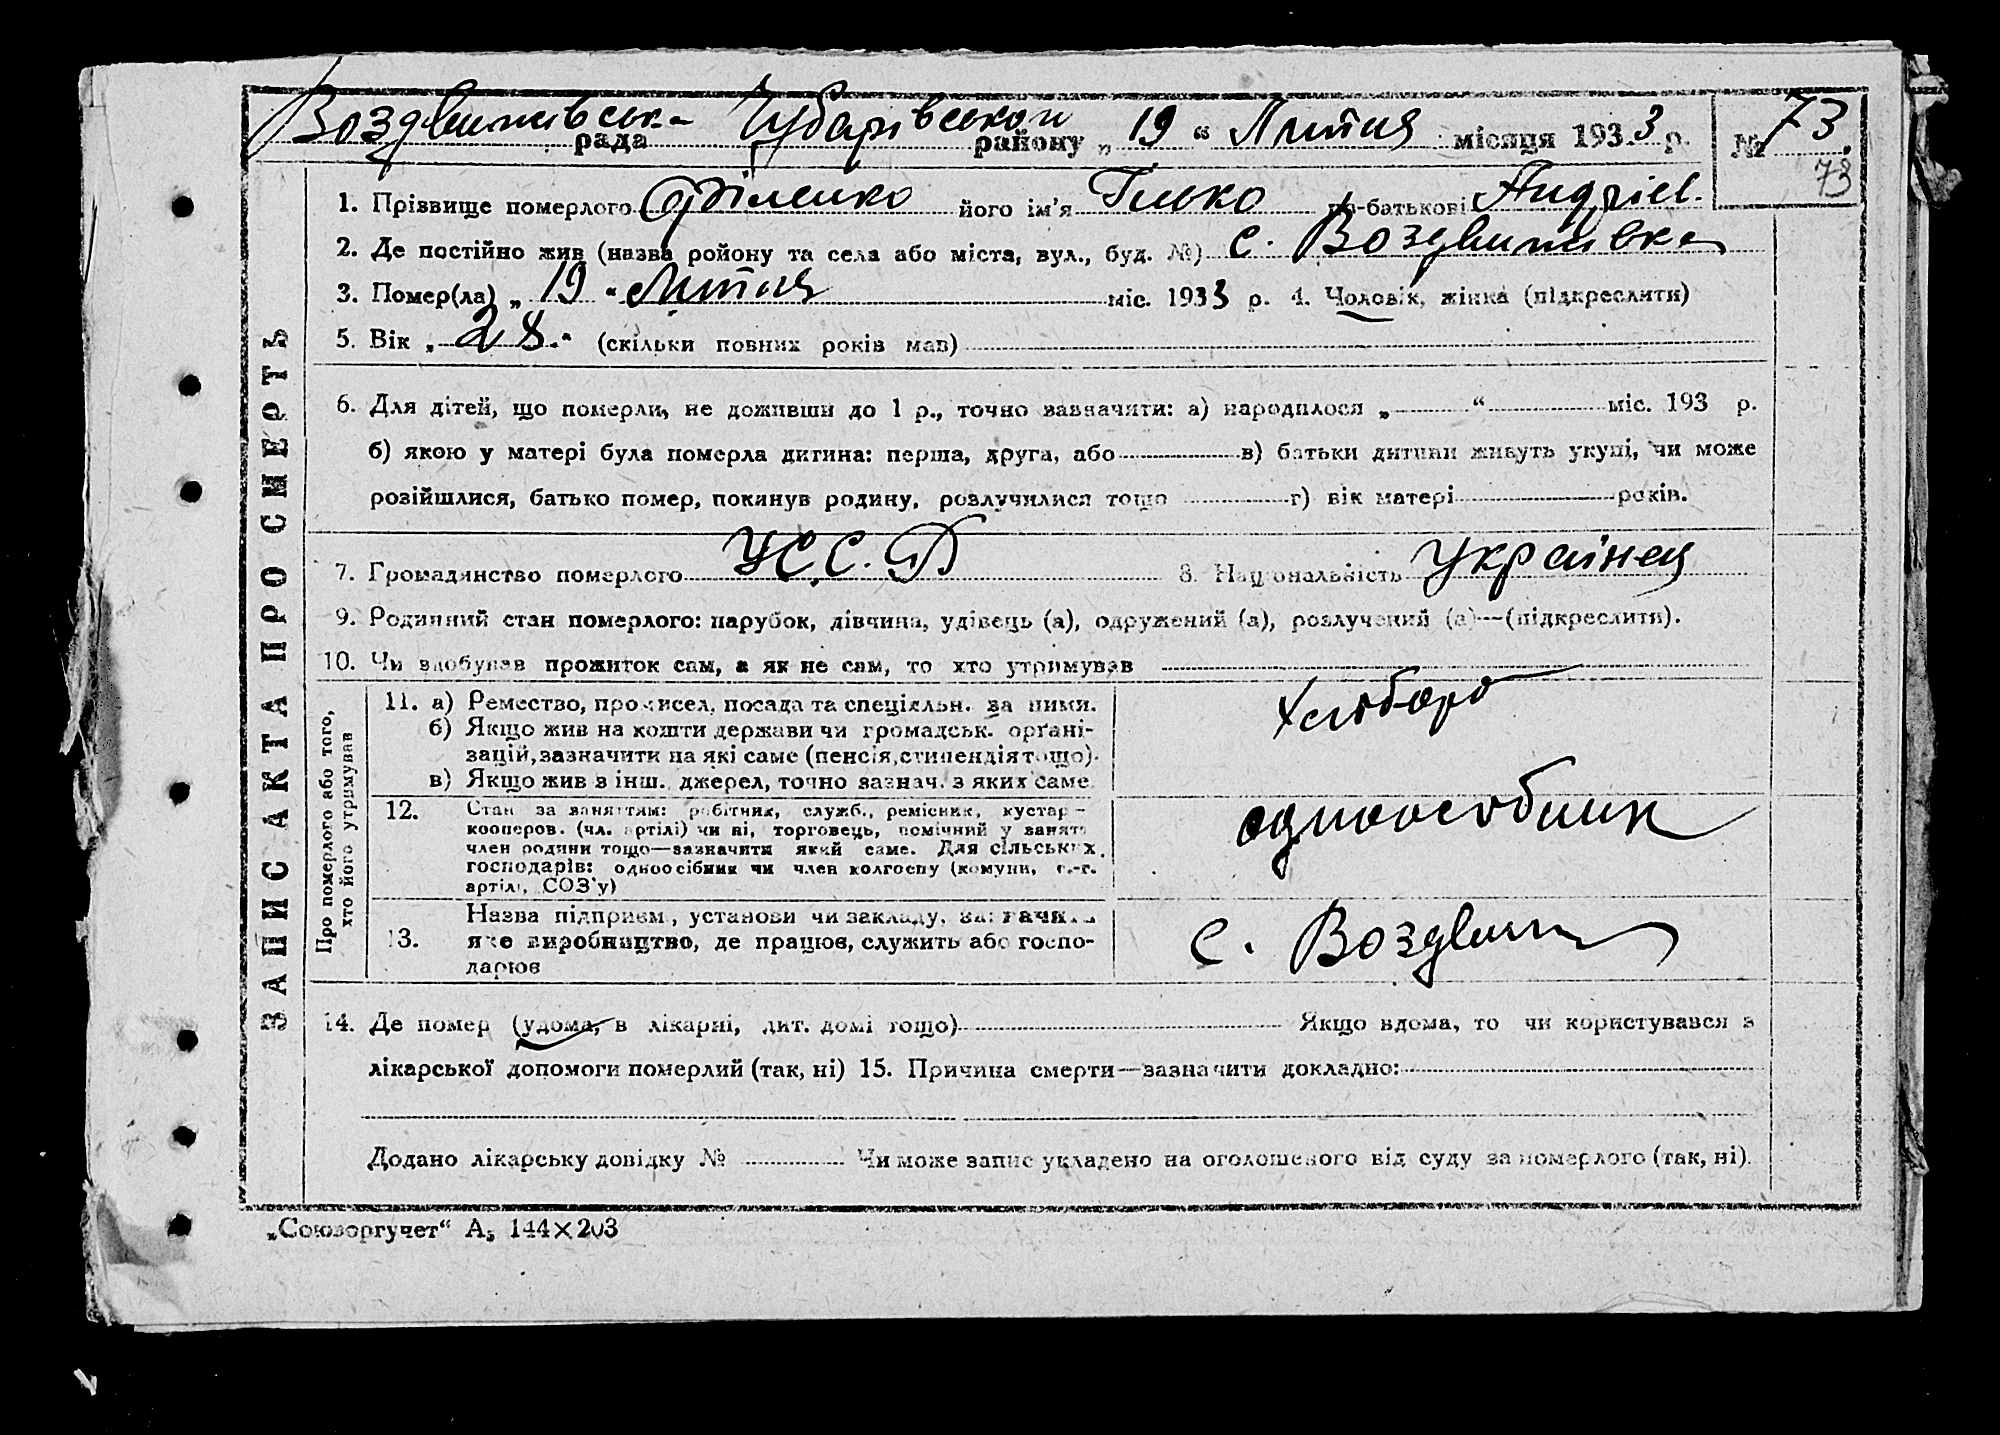 Воздвижівська рада Чубарівской району „ 19 “ Липня місяця 193 3 р. № 73.
73
1. Прізвище померлого Фріленко його ім'я Ілько по-батькові Андрієв.
2. Де постійно жив (назва ройону та села або міста, вул., буд. №) с. Воздвижівка
3. Помер(ла) „ 19 “ Липня міс. 193 3 р. 4. Чоловік, жінка (підкреслити)
5. Вік „ 28. “ (скільки повних років мав)
6. Для дітей, що померли, не доживши до 1 р., точно зазначити: а) народилося „ “ міс. 193 р.
б) якою у матері була померла дитина: перша, друга, або в) батьки дитини живуть укупі, чи може
розійшлися, батько помер, покинув родину, розлучилися тощо г) вік матері років.
7. Громадянство померлого У.С.С.Р 8. Національність Українец
9. Родинний стан померлого: парубок, дівчина, удівець (а), одружений (а), розлучений (а)—(підкреслити).
10. Чи здобував прожиток сам, а як не сам, то хто утримував
ЗАПИС АКТА ПРО СМЕРТЬ
Про померлого або того,
хто його утримував
11. а) Ремество, промисел, посада та спеціяльн. за ними.
б) Якщо жив на кошти держави чи громадськ. орґані-
зацій, зазначити на які саме (пенсія, стипендія тощо).
в) Якщо жив з інш. джерел, точно зазнач. з яких саме.
Хлібороб
12. Стан за заняттям: робітник, служб., ремісник, кустар-
кооперов. (чл. артілі) чи ні, торговець, помічний у занят.
член родини тощо—зазначити який саме. Для сільських
господарів: одноосібник чи член колгоспу (комуни, с.-г.
артілі, СОЗ'у)
одноосібник
13. Назва підприєм., установи чи закладу, зазначить
яке виробництво, де працює, служить або госпо-
дарює
с. Воздвиж
14. Де помер (удома, в лікарні, дит. домі тощо) Якщо вдома, то чи користувався з
лікарської допомоги померлий (так, ні) 15. Причина смерти—зазначити докладно:
Додано лікарську довідку № Чи може запис укладено на оголошеного від суду за померлого (так, ні).
„Союзоргучет“ А5 144×203